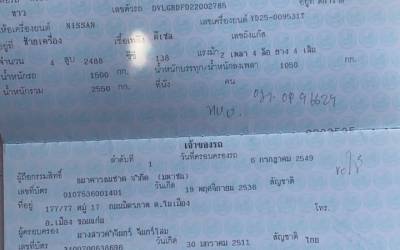 ขาว เลขตัวรถ DVLGRDFD22002785
ยี่ห้อเครื่องยนต์ NISSAN เลขเครื่องยนต์ YD25-009531T
อยู่ที่ ซ้ายเครื่อง เชื้อเพลิง ดีเซล เลขถังแก๊ส
จำนวน 4 สูบ 2488 ซีซี 138 แรงม้า 2 เพลา 4 ล้อ ยาง 4 เส้น
น้ำหนักรถ 1500 กก. น้ำหนักบรรทุก/น้ำหนักลงเพลา 1050 กก.
น้ำหนักรวม 2550 กก. ที่นั่ง คน
เจ้าของรถ
ลำดับที่ 1 วันที่ครอบครองรถ 6 กรกฎาคม 2549
ผู้ถือกรรมสิทธิ์ ธนาคารธนชาต จำกัด (มหาชน)
เลขที่บัตร 0107536001401 วันเกิด 19 พฤศจิกายน 2536 สัญชาติ
ที่อยู่ 177/77 หมู่ 17 ถนนมิตรภาพ ต.ในเมือง โทร.
อ.เมือง ขอนแก่น
ผู้ครอบครอง
เลขที่บัตร วันเกิด 30 มกราคม 2511 สัญชาติ ไทย